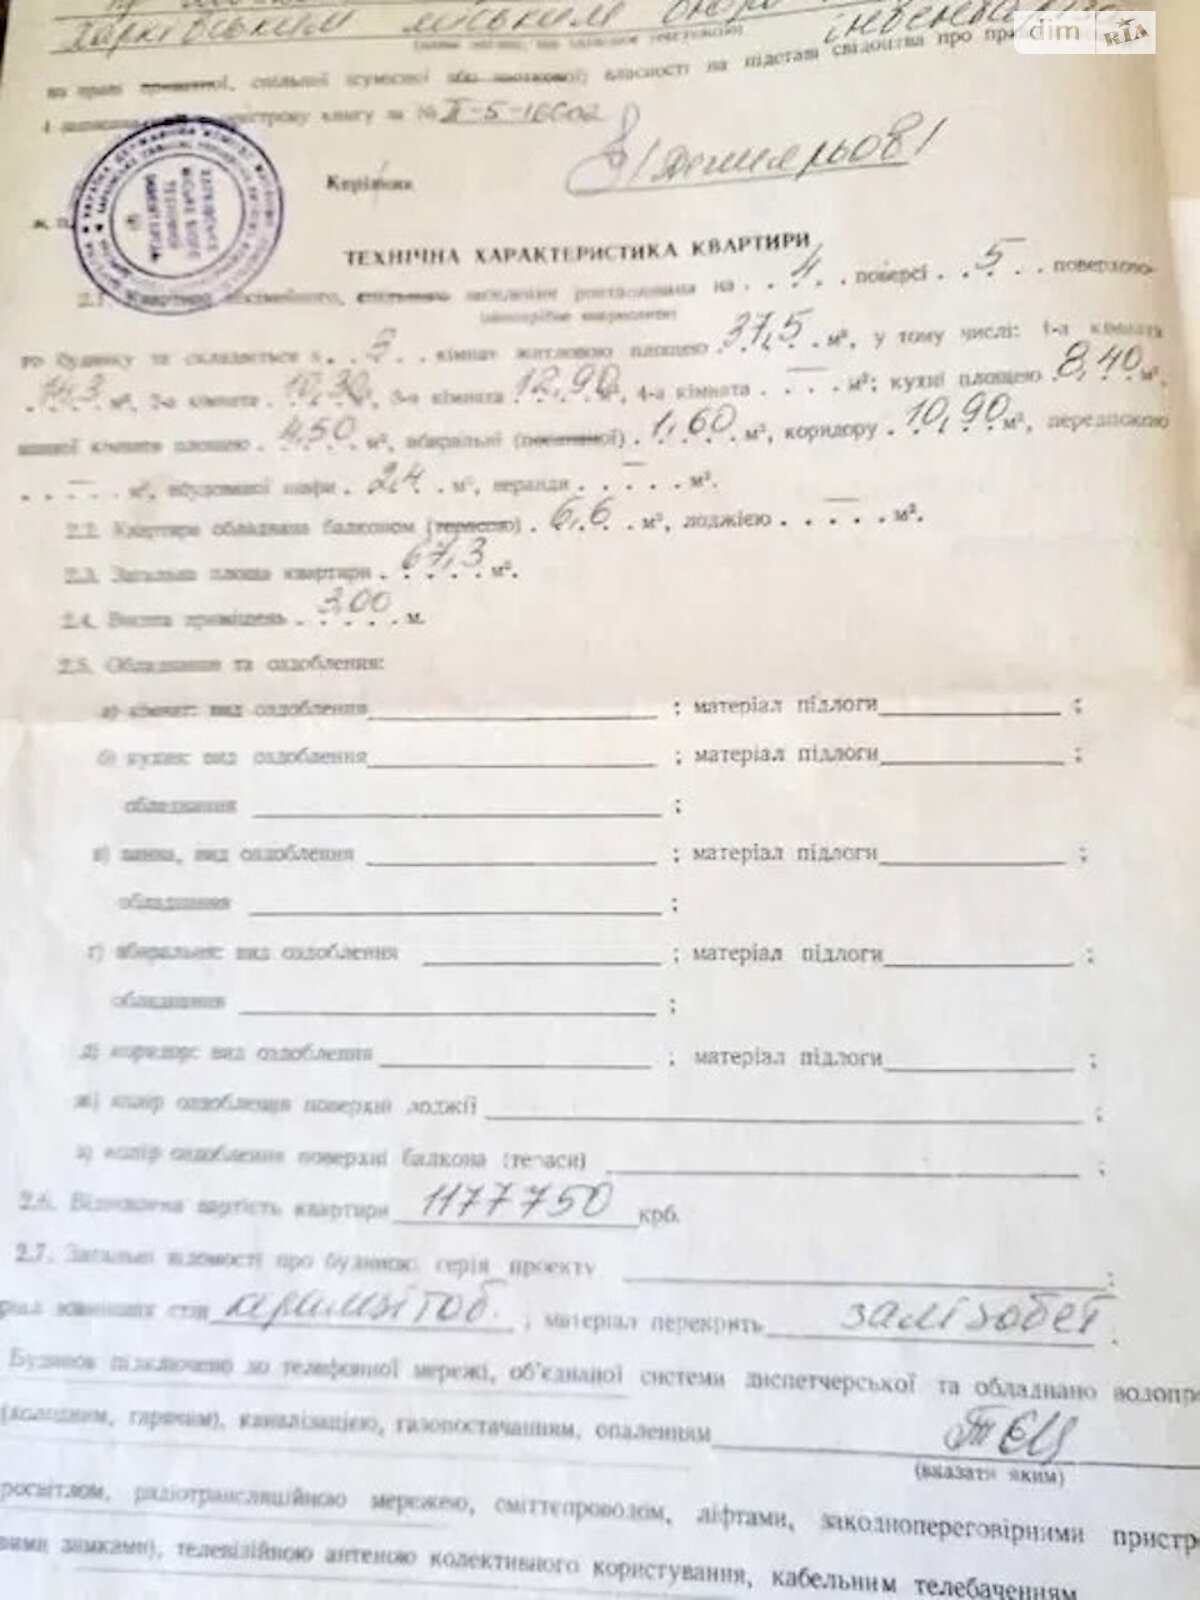 Харківським міським бюро інвентариза
dim RIA
(назва органу, що здійснює реєстрацію)
на праві приватної, спільної (сумісної або часткової) власності на підставі свідоцтва про пра
і записана в реєстрову книгу за № П-5-16602
Керівник
ТЕХНІЧНА ХАРАКТЕРИСТИКА КВАРТИРИ
2.1. Квартира посімейного, спільного заселення розташована на 4 поверсі 5 поверхово-
(непотрібне викреслити)
го будинку та складається з 3 кімнат житловою площею 37,5 м², у тому числі: 1-а кімната
14,3 м², 2-а кімната 10,30 м², 3-а кімната 12,90 м², 4-а кімната — м²; кухні площею 8,40 м²,
ванної кімнати площею 4,50 м², вбиральні (поєднаної) 1,60 м², коридору 10,90 м², передпокою
— м², вбудованої шафи 2,4 м², веранди — м².
2.2. Квартира обладнана балконом (терасою) 6,6 м², лоджією — м².
2.3. Загальна площа квартири 67,3 м².
2.4. Висота приміщень 3,00 м.
2.5. Обладнання та оздоблення:
а) кімнат: вид оздоблення ; матеріал підлоги ;
б) кухня: вид оздоблення ; матеріал підлоги ;
обладнання ;
в) ванна, вид оздоблення ; матеріал підлоги ;
обладнання ;
г) вбиральня: вид оздоблення ; матеріал підлоги ;
обладнання ;
д) коридор: вид оздоблення ; матеріал підлоги ;
ж) колір оздоблення поверхні лоджії ;
з) колір оздоблення поверхні балкона (тераси) ;
2.6. Відновлена вартість квартири 1177750 крб.
2.7. Загальні відомості про будинок: серія проекту ;
ріал зовнішніх стін керамзітоб. ; матеріал перекрить залізобет .
Будинок підключено до телефонної мережі, об'єднаної системи диспетчерської та обладнано водопро
(холодним, гарячим), каналізацією, газопостачанням, опаленням ТЕЦ
(вказати яким)
росвітлом, радіотрансляційною мережею, сміттєпроводом, ліфтами, закоднопереговірними пристр
вими замками), телевізійною антеною колективного користування, кабельним телебаченням